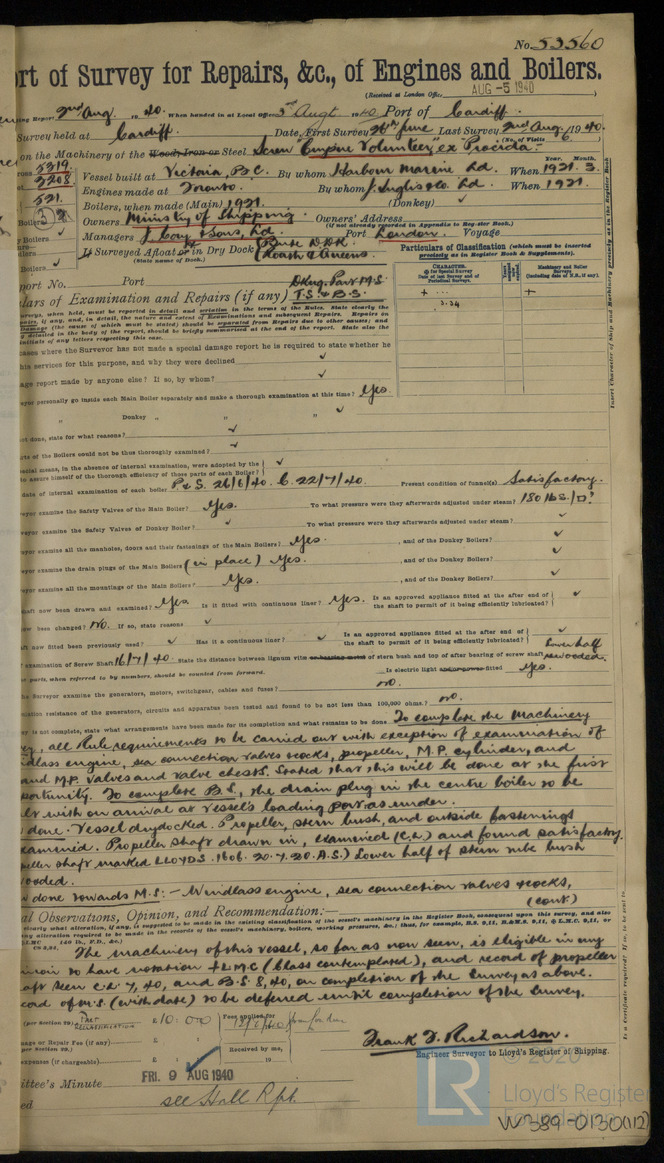 No. 53560
rt of Survey for Repairs, &c., of Engines and Boilers.
(Received at London Office AUG -5 1940 )
ing Report 2nd Aug 1940. When handed in at Local Office 3rd Augt 1940 Port of Cardiff.
Survey held at Cardiff. Date, First Survey 26th June Last Survey 2nd Aug. 1940.
(No. of Visits 6 )
on the Machinery of the Wood, Iron or Steel Screw "Empire Volunteer, ex Procida."
3319. Vessel built at Victoria, B.C. By whom Harbour Marine Ld. When 1921. 3.
Year. Month.
3208 Engines made at Toronto. By whom J. Inglis & Co. Ld. When 1921.
521. Boilers, when made (Main) 1921. (Donkey) ✓
Owners Ministry of Shipping. Owners' Address
(If not already recorded in Appendix to Register Book.)
Managers J. Cory & Sons, Ld. Port London. Voyage
If Surveyed Afloat or in Dry Dock
(State name of Dock.)
Particulars of Classification (which must be inserted precisely as in Register Book & Supplements).
port No. Port
lars of Examination and Repairs (if any) Dkng. Part M.S. T.S. & B.S.
CHARACTER.
3.24
cases where the Surveyor has not made a special damage report he is required to state whether he
his services for this purpose, and why they were declined ✓
age report made by anyone else? If so, by whom? ✓
eyor personally go inside each Main Boiler separately and make a thorough examination at this time? Yes
" Donkey " " " ✓
ot done, state for what reasons? ✓
rts of the Boilers could not be thus thoroughly examined? ✓
pecial means, in the absence of internal examination, were adopted by the
to assure himself of the thorough efficiency of those parts of each Boiler? ✓
date of internal examination of each boiler P & S. 26/6/40. C. 22/7/40. Present condition of funnel(s) Satisfactory.
eyor examine the Safety Valves of the Main Boiler? Yes. To what pressure were they afterwards adjusted under steam? 180 lbs/□"
eyor examine the Safety Valves of Donkey Boiler? ✓ To what pressure were they afterwards adjusted under steam? ✓
eyor examine all the manholes, doors and their fastenings of the Main Boilers? Yes. , and of the Donkey Boilers? ✓
eyor examine the drain plugs of the Main Boilers (in place) Yes. , and of the Donkey Boilers? ✓
eyor examine all the mountings of the Main Boilers? Yes. , and of the Donkey Boilers? ✓
haft now been drawn and examined? Yes. Is it fitted with continuous liner? Yes. Is an approved appliance fitted at the after end of the shaft to permit of it being efficiently lubricated? ✓
er been changed? No. If so, state reasons ✓
ft now fitted been previously used? ✓ Has it a continuous liner? ✓ Is an approved appliance fitted at the after end of the shaft to permit of it being efficiently lubricated? ✓
examination of Screw Shaft 16/7/40. State the distance between lignum vitæ or bearing metal of stern bush and top of after bearing of screw shaft Lower half rewooded.
parts, when referred to by numbers, should be counted from forward. Is electric light and/or power fitted Yes.
he Surveyor examine the generators, motors, switchgear, cables and fuses? no.
sulation resistance of the generators, circuits and apparatus been tested and found to be not less than 100,000 ohms? no.
ey is not complete, state what arrangements have been made for its completion and what remains to be done To complete the Machinery
ey, all Rule requirements to be carried out with exception of examination of
dlass engine, sea connection valves & cocks, propeller, M.P. cylinder, and
and M.P. valves and valve chests. Stated that this will be done at the first
portunity. To complete B.S., the drain plug in the centre boiler to be
lt with on arrival at vessel's loading port as under.
done. Vessel drydocked. Propeller, stern bush, and outside fastenings
xamined. Propeller shaft drawn in, examined (C.L.) and found satisfactory.
peller shaft marked LLOYDS. 1606. 20.7.20. A.S.) Lower half of stern tube bush
ooded.
done towards M.S:- Windlass engine, sea connection valves & cocks,
(cont)
al Observations, Opinion, and Recommendation:—
The machinery of this vessel, so far as now seen, is eligible in my
inion to have notation + LMC (Class contemplated), and record of propeller
aft seen C.L. 7,40, and B.S. 8,40, on completion of the survey as above.
cord of M.S. (with date) to be deferred until completion of the survey.
(per Section 29) PART RECLASSIFICATION £ 10 : 0 : 0 Fees applied for
age or Repair Fee (if any) £ : : Received by me,
(per Section 29.)
expenses (if chargeable) £ : : 19
Frank F. Richardson.
Engineer Surveyor to Lloyd's Register of Shipping.
ittee's Minute FRI. 9 AUG 1940
ed see Hull Rpt.
© 2020
LR Lloyd's Register Foundation
W389-0130(1/2)